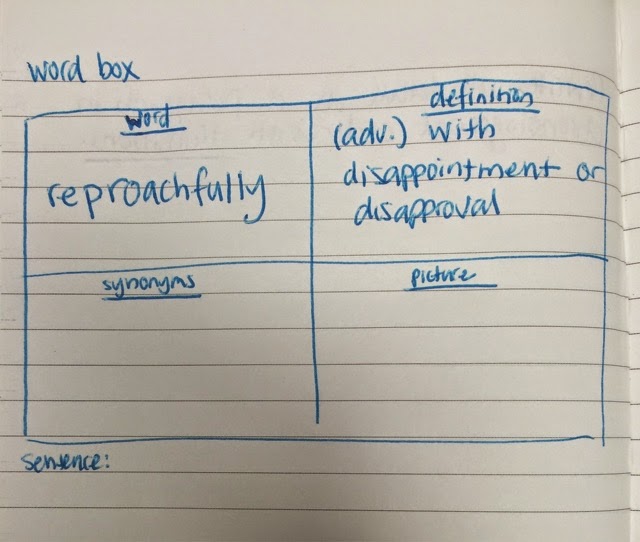 word box
word
reproachfully
definition
(adv.) with
disappointment or
disapproval
synonyms
picture
sentence: